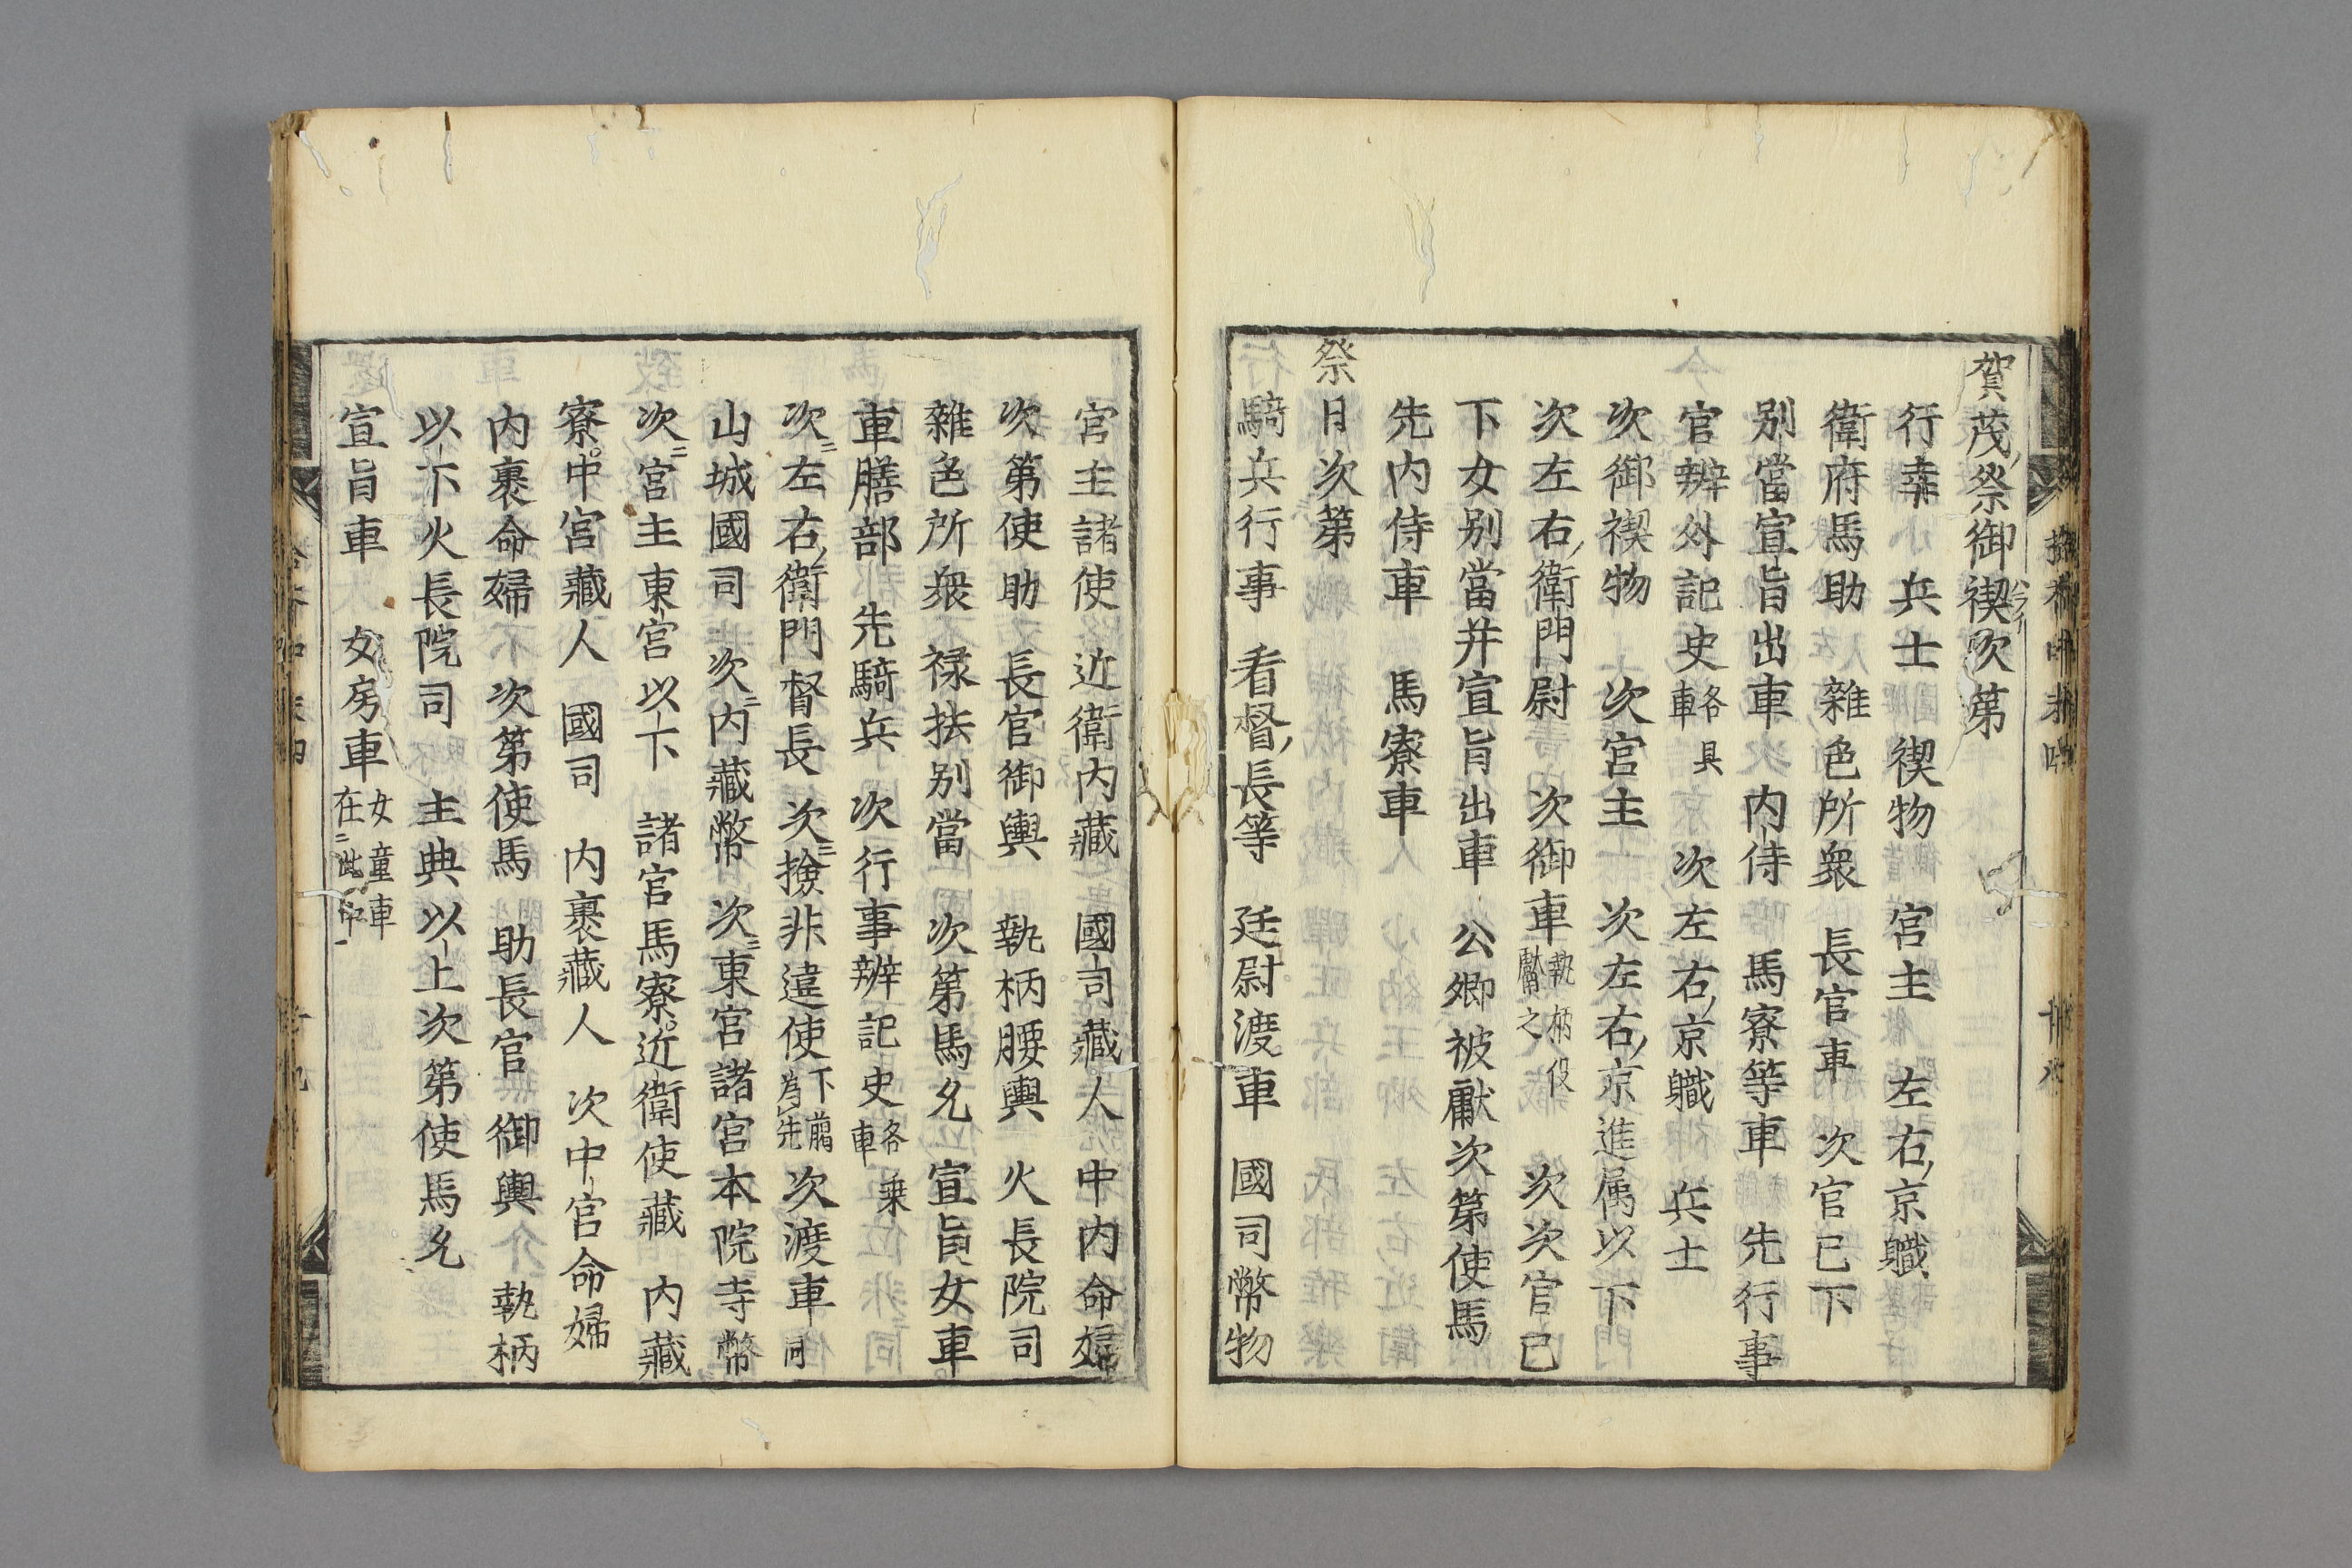 賀茂祭御禊次第
行幸 小兵士 禊物 宮主 左右京職
衛府馬助 雜色所衆 長官車 次官已下
別當宣旨出車 内侍 馬寮等車 先行事
官辨外記史各具車 次左右京職 兵士
次御禊物 次宮主 次左右京進属以下
次左右衛門尉 次御車執柄役獻之 次次官已
下女別當并宣旨出車 公卿被獻次第使馬
先内侍車 馬寮車
祭日次第
騎兵行事 看督長等 廷尉渡車 國司幣物
宮主諸使 近衛内藏 國司藏人 中内命婦
次第使助 長官御輿 執柄腰輿 火長院司
雜色所衆 禄抾別當 次第馬允 宣旨女車
車膳部 先騎兵 次行事辨記史各乗車
次左右衛門督長 次撿非違使下﨟為先 次渡車同
山城國司 次内藏幣 次東宮諸宮本院寺幣
次宮主東宮以下 諸官馬寮近衛使藏 内藏
寮中宮藏人 國司 内裹藏人 次中官命婦
内裹命婦 次第使馬 助長官 御輿 執柄
以下火長院司 主典以上次第使馬允
宣旨車 女房車女童車在此中